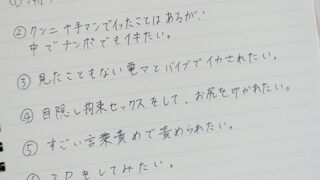 ② クンニや手マンでイッたことはあるが、
中でチンポでもイキたい。
③ 見たこともない電マとバイブでイカされたい。
④ 目隠し拘束セックスをして、お尻を叩かれたい。
⑤ すごい言葉責めで責められたい。
3Pをしてみたい。